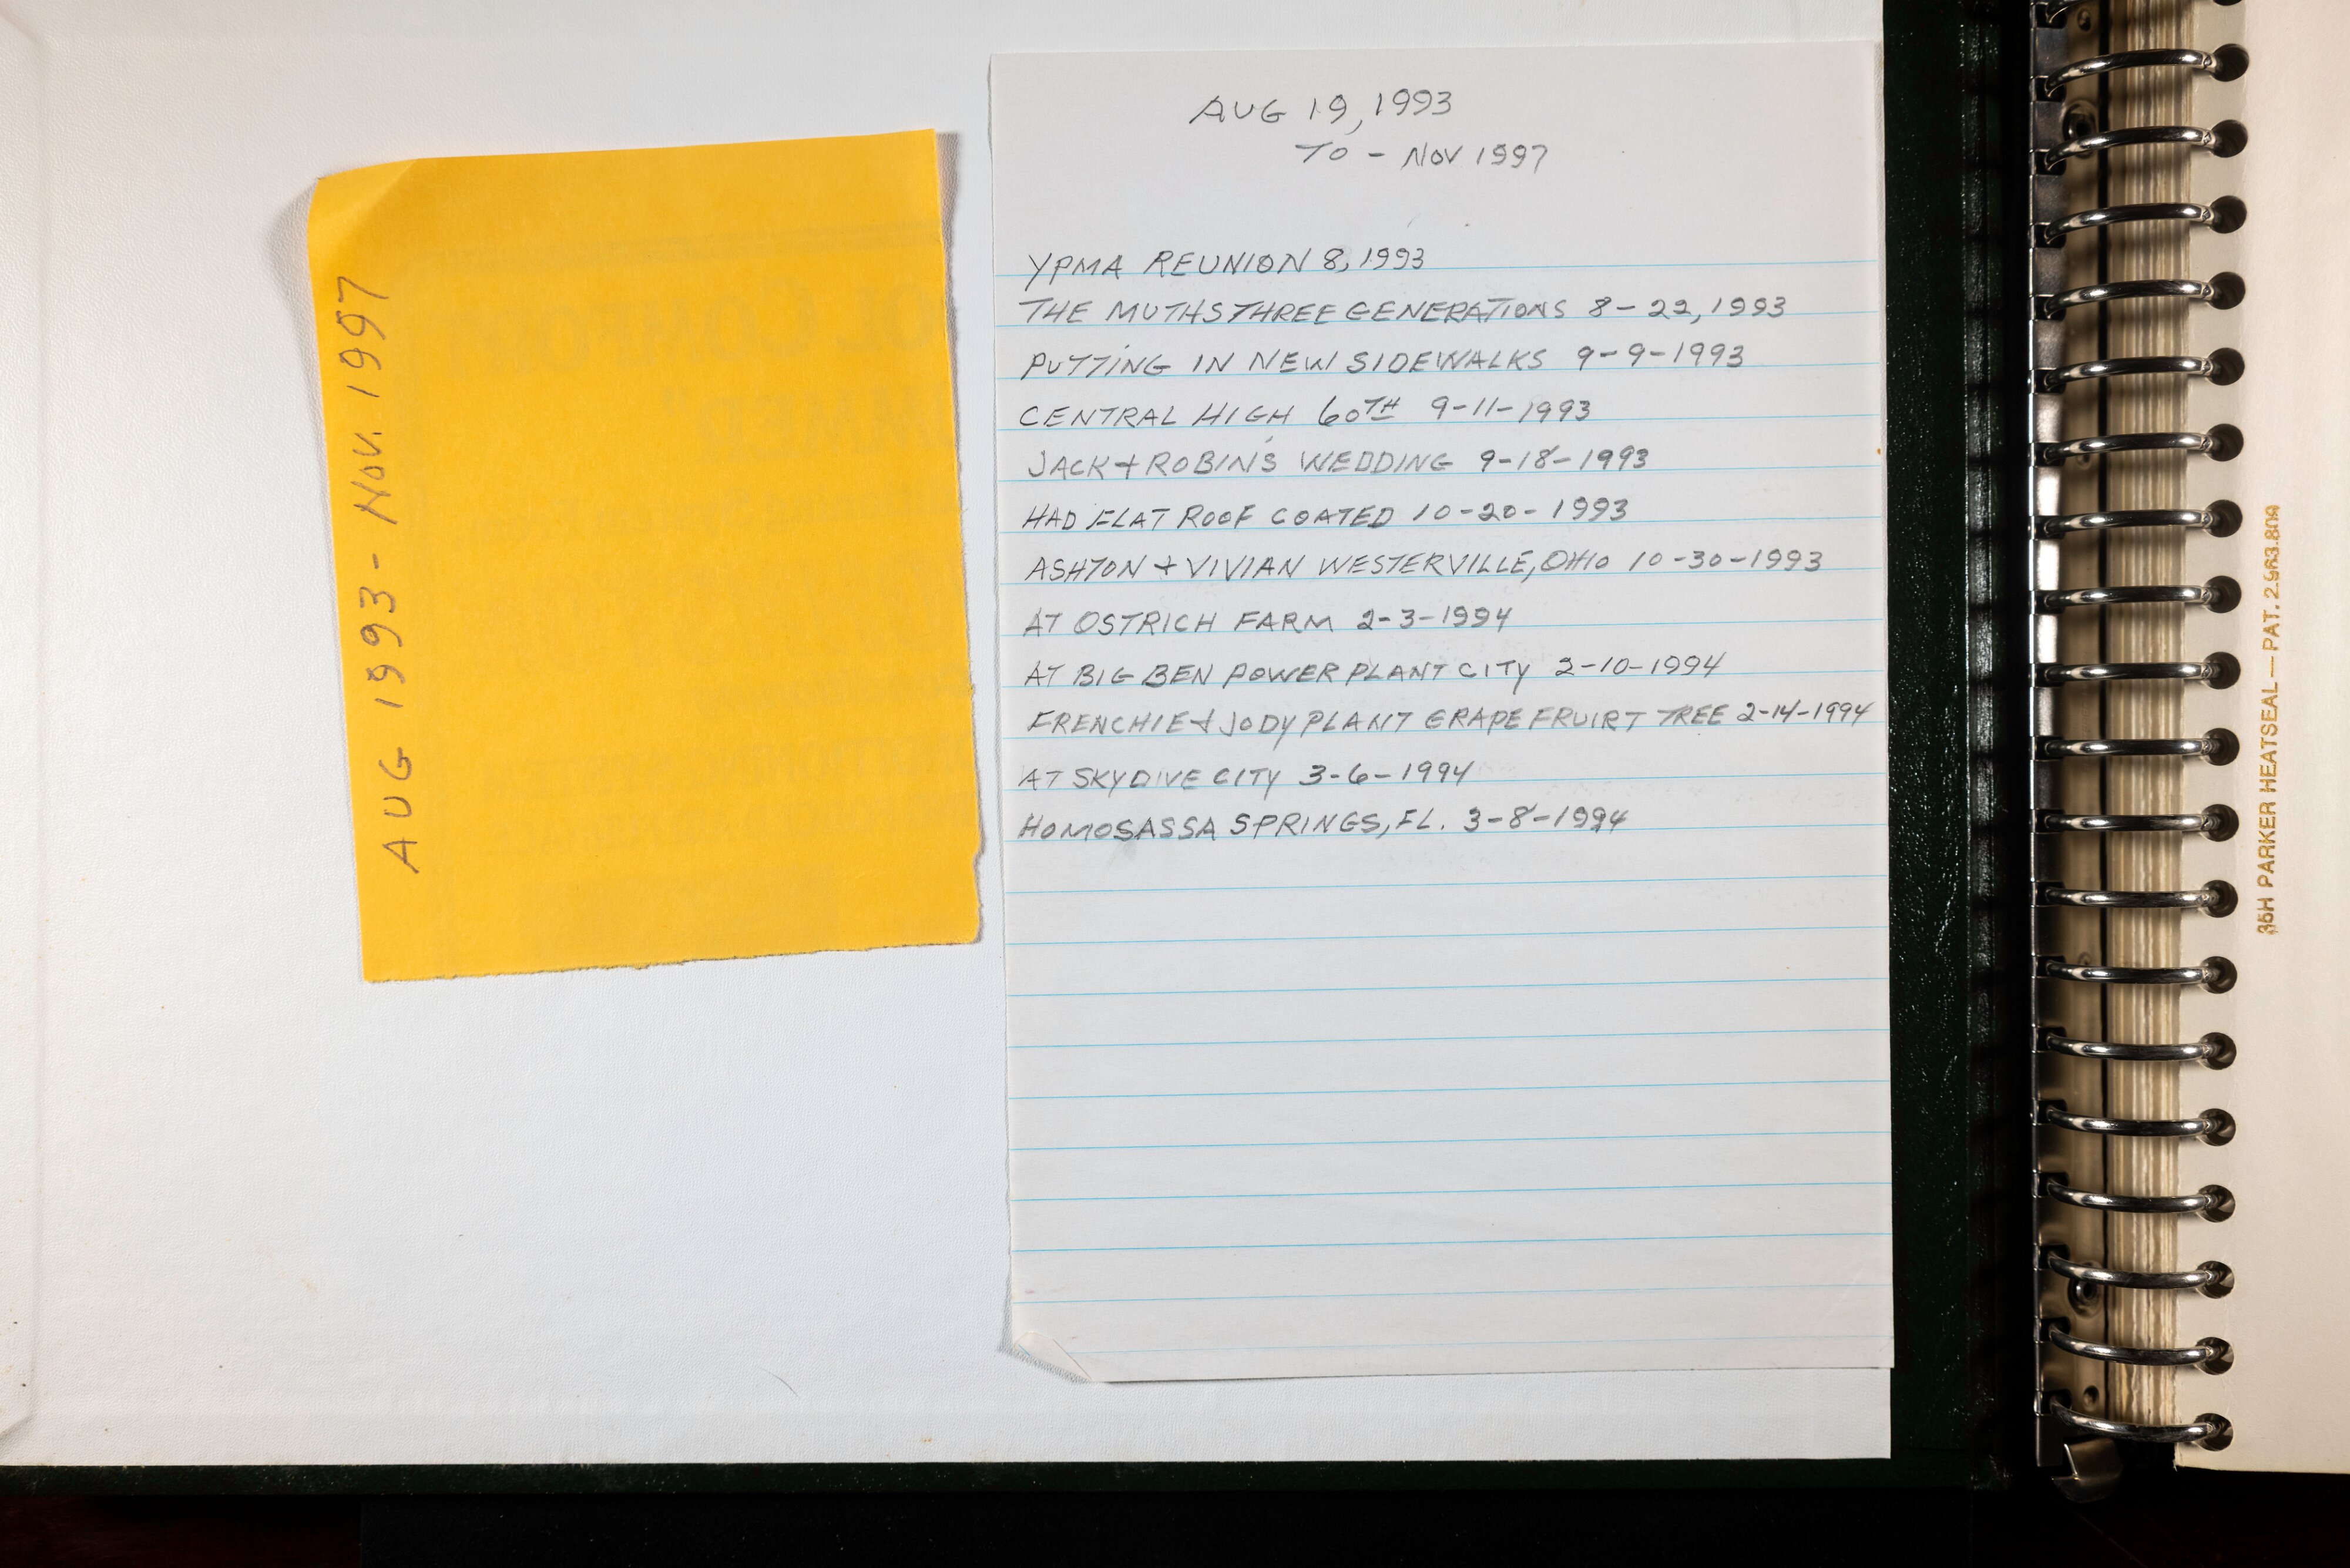 AUG 1993 - NOV. 1997
AUG 19, 1993
TO - NOV 1997
YPMA REUNION 8, 1993
THE MUTHS THREE GENERATIONS 8-22, 1993
PUTTING IN NEW SIDEWALKS 9-9-1993
CENTRAL HIGH 60TH 9-11-1993
JACK + ROBIN'S WEDDING 9-18-1993
HAD FLAT ROOF COATED 10-20-1993
ASHTON + VIVIAN WESTERVILLE, OHIO 10-30-1993
AT OSTRICH FARM 2-3-1994
AT BIG BEN POWER PLANT CITY 2-10-1994
FRENCHIE + JODY PLANT GRAPE FRUIRT TREE 2-14-1994
AT SKYDIVE CITY 3-6-1994
HOMOSASSA SPRINGS, FL. 3-8-1994
35H PARKER HEATSEAL — PAT. 2.983.809